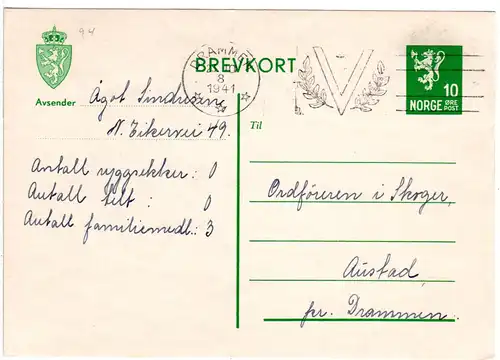 94
BREVKORT
DRAMMEN
8
1941
V
10
NORGE ØRE
POST
Avsender
Ågot Sindresen
N. Eikervei 49.
Til
Antall ryggsekker: 0
Antall telt : 0
Antall familiemedl.: 3
Ordføreren i Skoger,
Austad,
pr. Drammen.